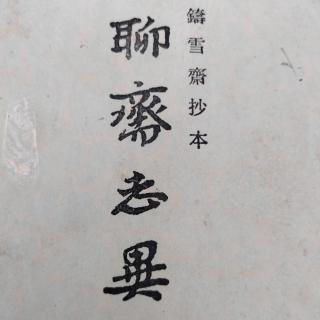 鑄雪齋抄本
聊齋志異